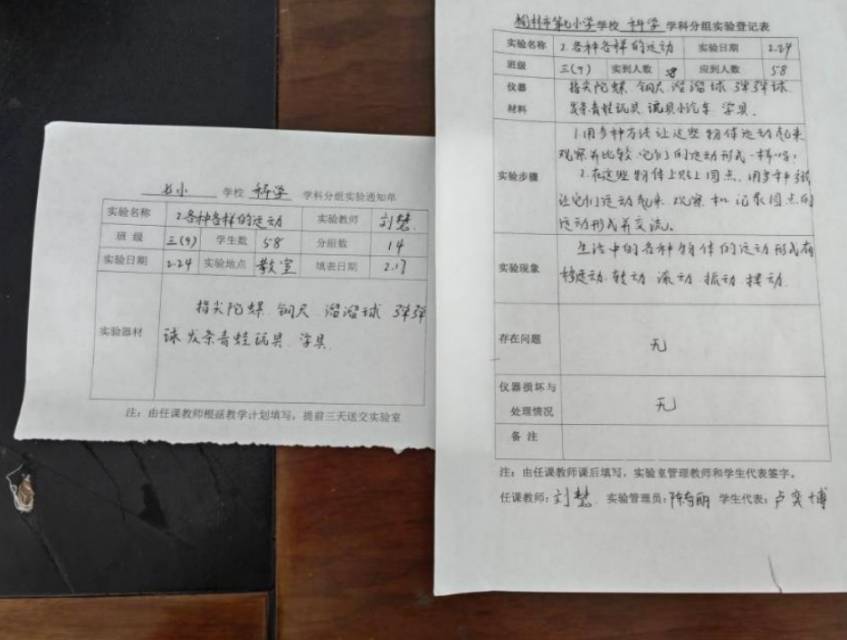 七小 学校 科学 学科分组实验通知单
实验名称 2.各种各样的运动 实验教师 刘慧
班 级 三(9) 学生数 58 分组数 14
实验日期 2.24 实验地点 教室 填表日期 2.17
实验器材 指尖陀螺 钢尺 溜溜球 弹弹
球 发条青蛙玩具 学具
注：由任课教师根据教学计划填写，提前三天送交实验室
榆林市第七小学学校 科学 学科分组实验登记表
实验名称 2.各种各样的运动 实验日期 2.24
班级 三(9) 实到人数 58 应到人数 58
仪器 指尖陀螺 钢尺 溜溜球 弹弹球
材料 发条青蛙玩具 玩具小汽车 学具
1.用多种方法让这些物体运动起来
观察并比较它们的运动形式一样吗？
实验步骤 2.在这些物体上贴上圆点，用多种
让它们运动起来 观察和记录圆点的
运动形式并交流。
生活中的各种物体的运动形式有
实验现象 移运动 转动 滚动 振动 摆动
存在问题 无
仪器损坏与
处理情况 无
备 注
注：由任课教师课后填写，实验室管理教师和学生代表签字。
任课教师：刘慧 实验管理员： 学生代表：卢奕博